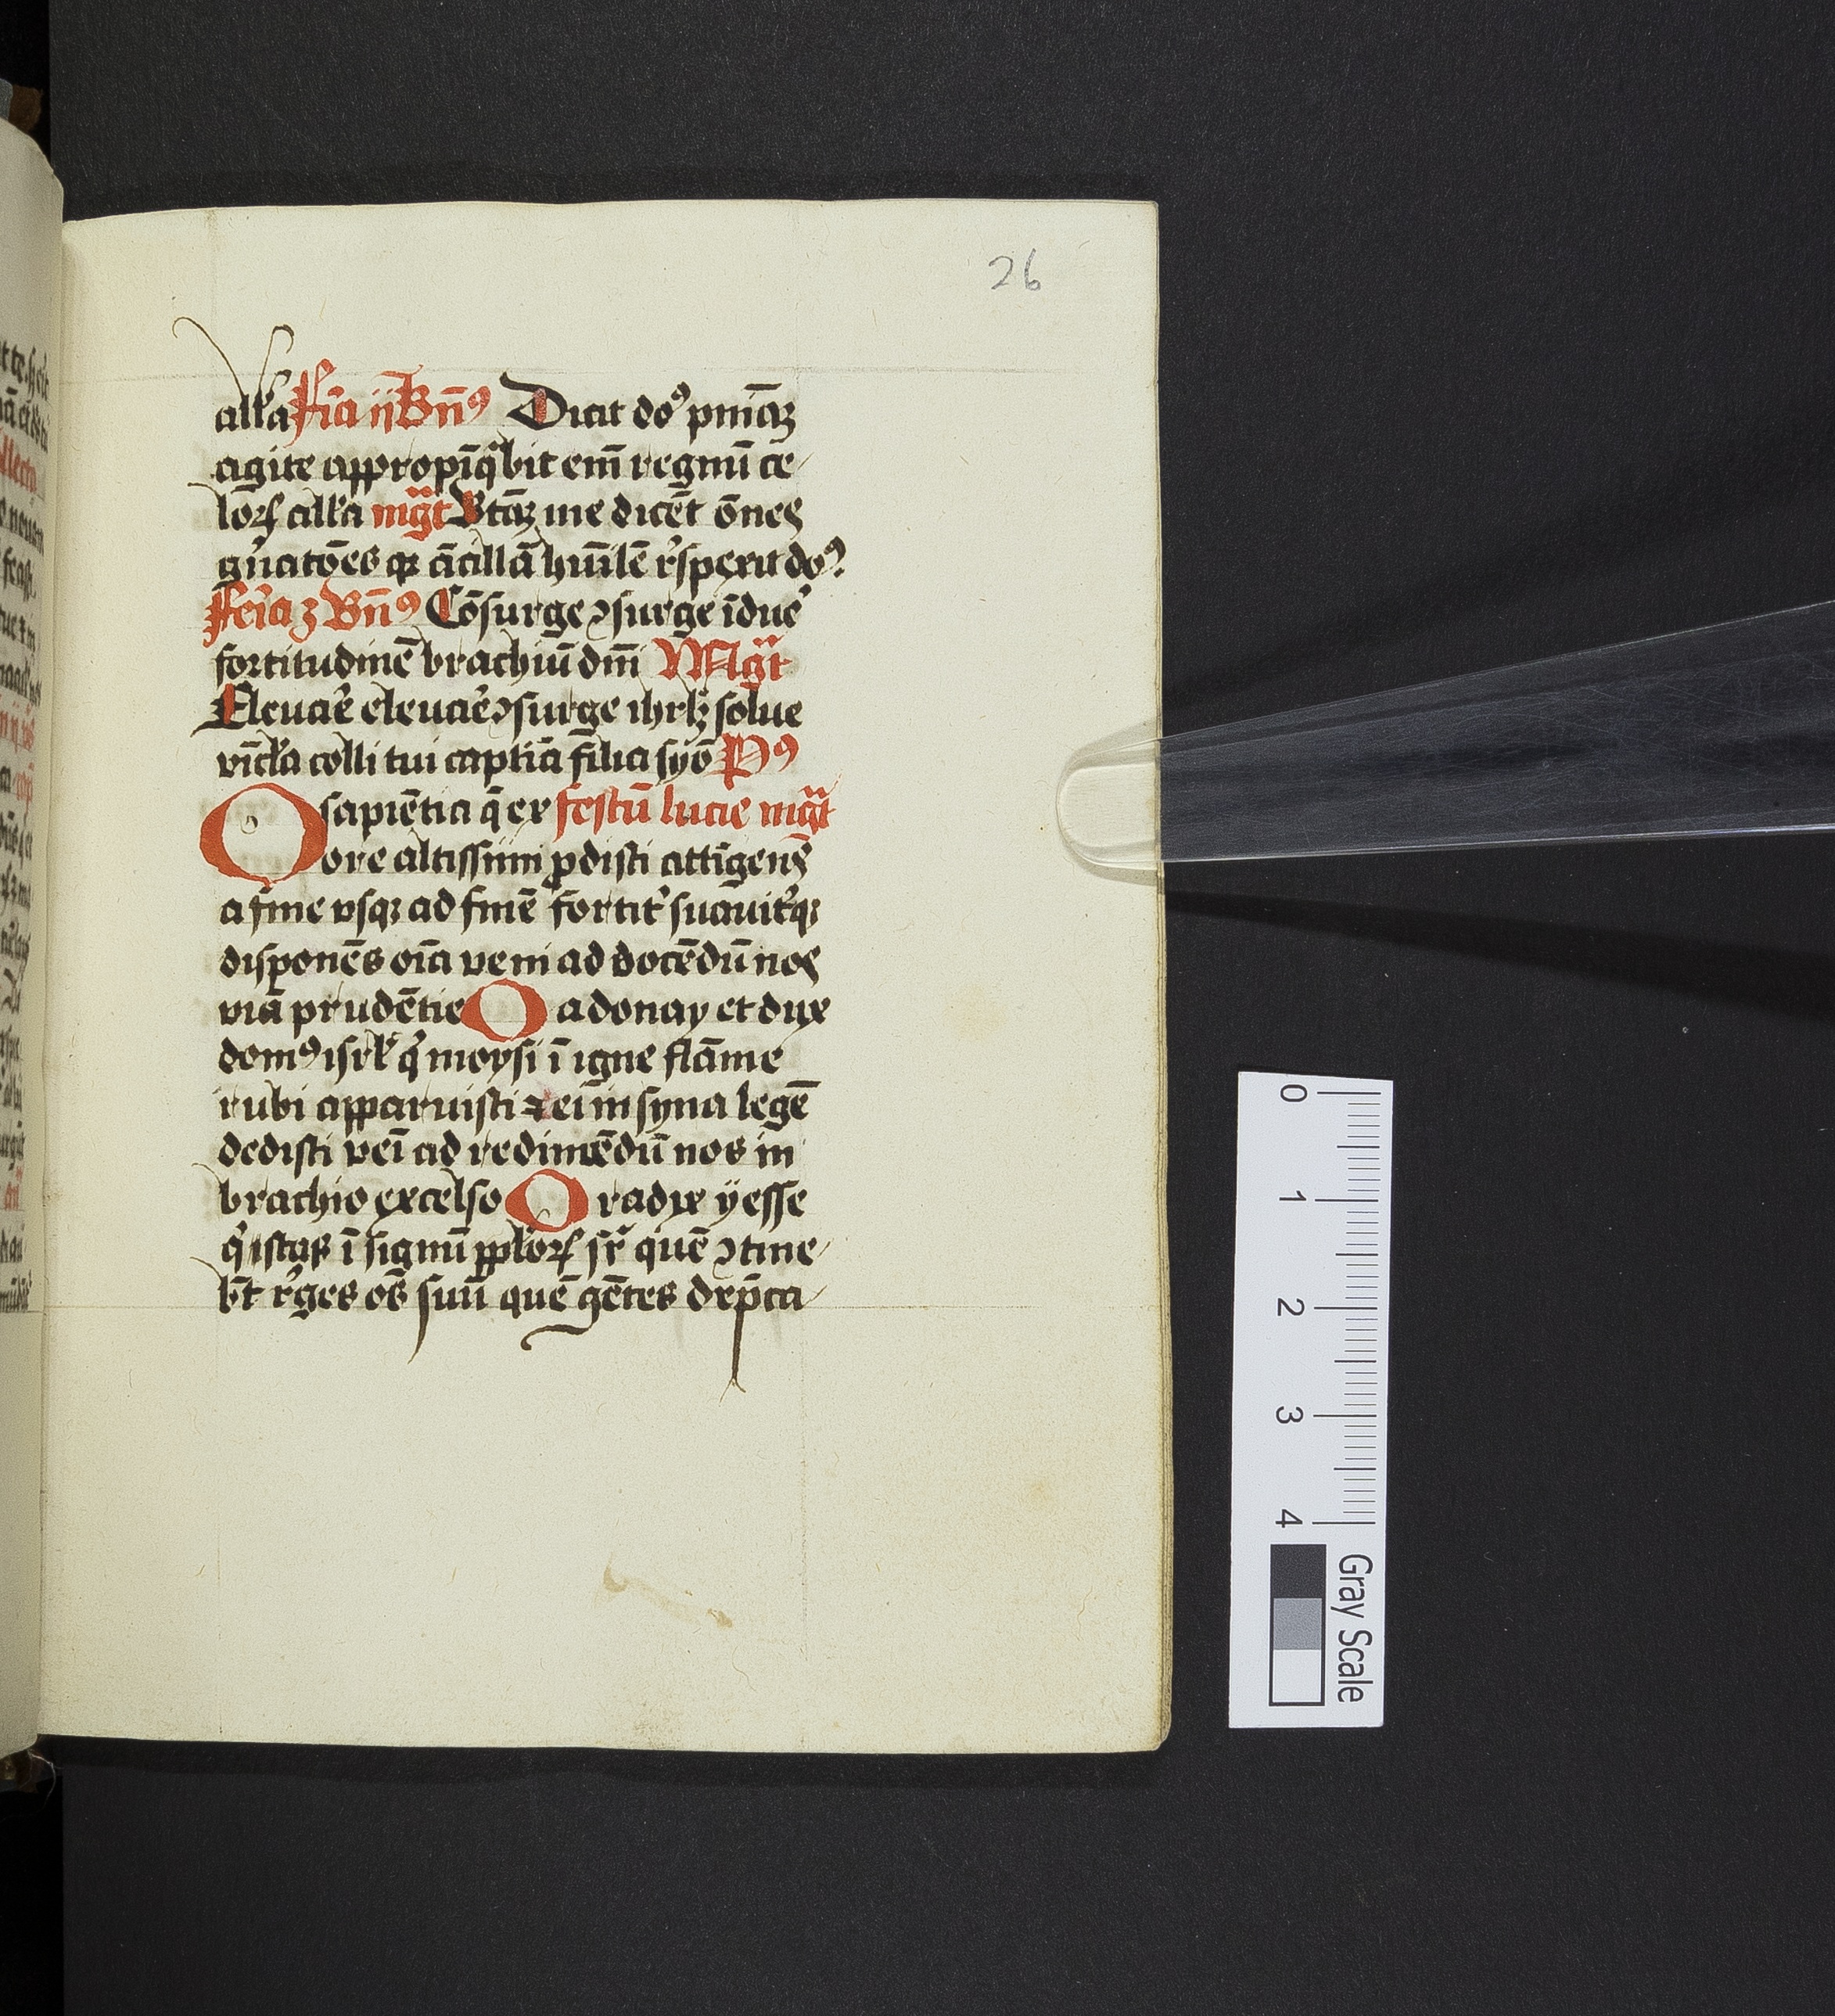 26
all'a fr̄ia ij Bn̄ꝰ Dicit doꝰ pn̄iāꝫ
agite appropīq̄bit em̄ regnū ce
lorꝝ all'a mg̃t Btāꝫ me dicēt ōnes
gn̄atōes qꝛ ācillā hūilē r̓spexit doꝰ
Fer̄ia 3 Bn̄ꝰ Cōsurge ꝯsurge īdue᷒
fortitudinē brachiū dn̄i Mg̃t
Eleuar̄e eleuar̄e ꝯsurge ihrlꝫ solue
vīcl'a colli tui captiā filia syō Pꝰ
O sapiētia q̄ ex festū lucie mg̃t
ore altissimi ꝓdisti attīgens
a fine vsqꝫ ad finē fortit᷒ suāuit᷒qꝫ
disponēs oīa veni ad docēdū nos
viā prudētie O adonay et dux
domꝰ isrl' q̓ moysi ī igne flāme
rubi apparuisti ⁊ ei in syna legē
dedisti veī ad redimēdū nos in
brachio excelso O radix yesse
q̓ istas ī signū ppl'orꝝ sr̃ quē ꝯtine
bt̄ r̓ges os̄ suū quē gētes dep̄ca
0
1
2
3
4
Gray Scale